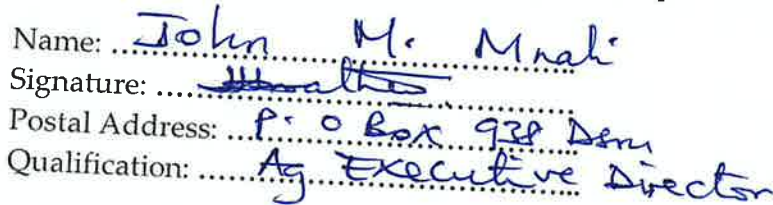 Name: John M. Mnali
Signature:
Postal Address: P. O Box 938 Dsm
Qualification: Ag Executive Director